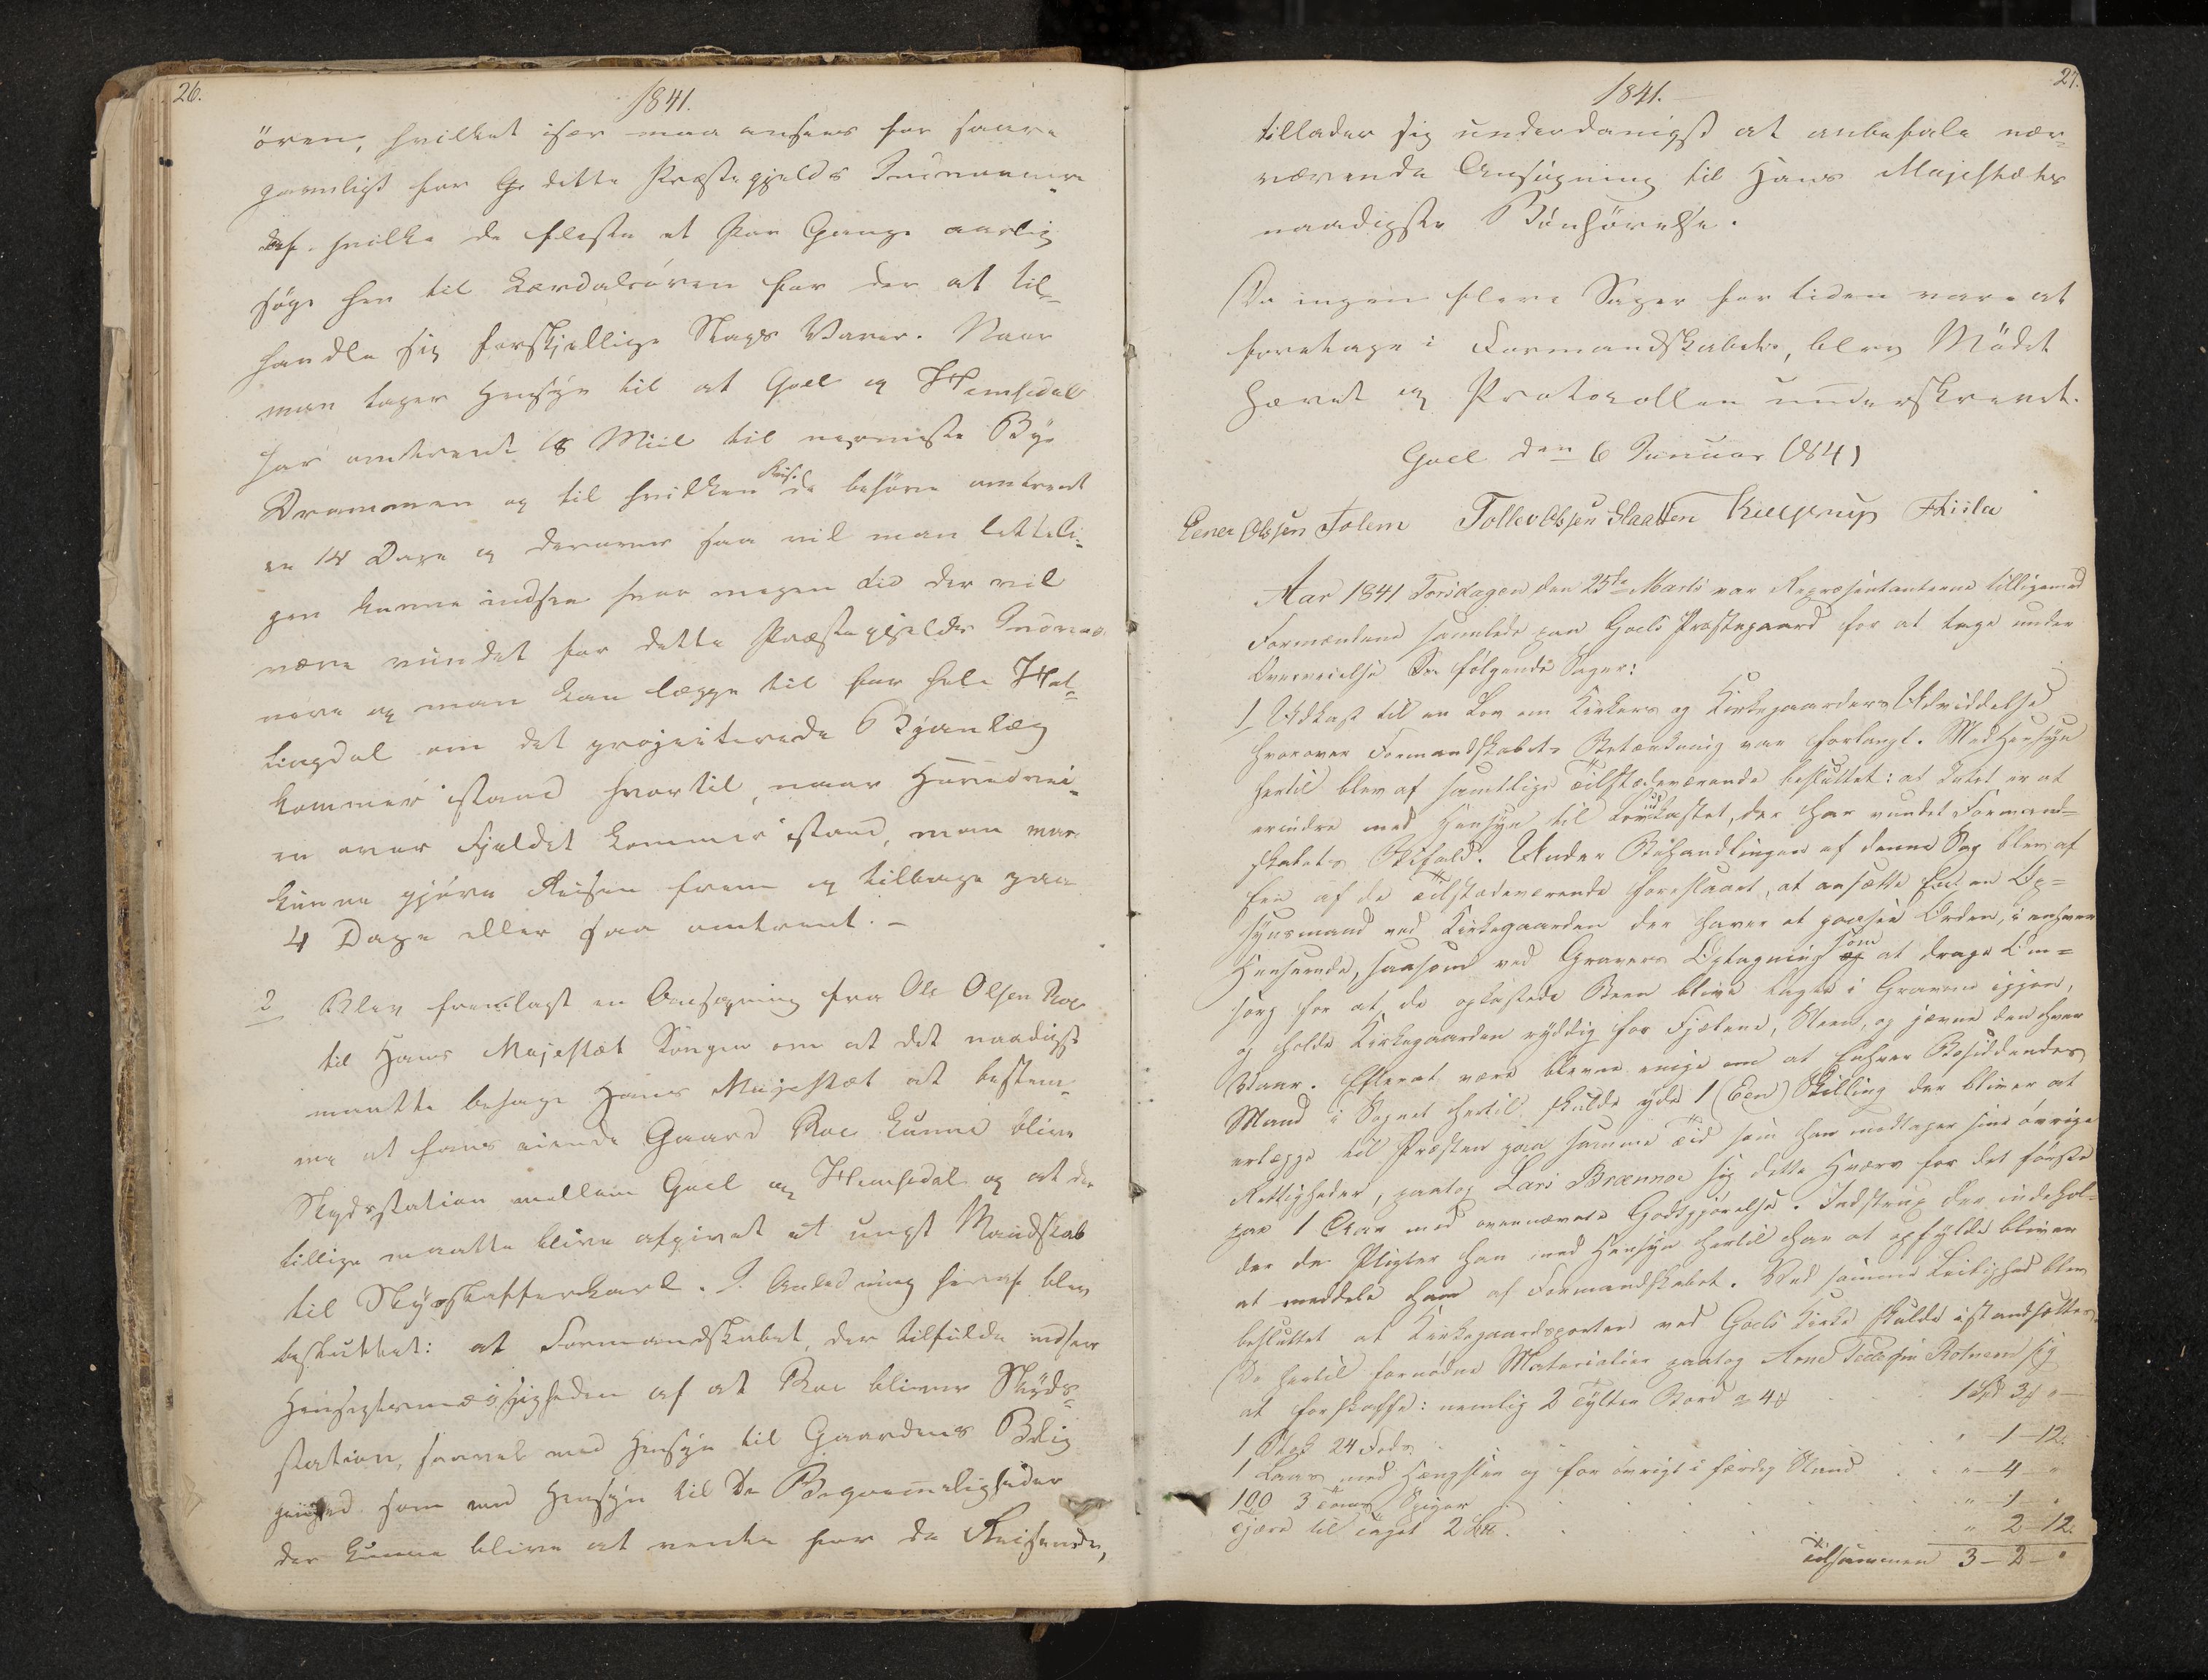 26.
1841.
ören, hvilket især maa ansees for saare
gavnligt for dette Præstegjelds Indvaanere
af hvilke de fleste et Par Gange aarlig
söge hen til Lærdalsören for der at til-
handle sig forskjellige Slags Varer. Naar
man tager Hensyn til at Goel og Hemsedal
har omtrent 18 Miil til nærmeste Bye
Drammen og til hvilken Reise de behöve omtrent
en 14 Dage og derover saa vil man letteli-
gen kunne indsee hvor megen Tid der vil
være vundet for dette Præstegjelds Indvaa-
nere og man kan lægge til for hele Hal-
lingdal om det projecterede Byanlæg
kommer istand hvortil, naar Hovedvei-
en over Fjeldet kommer istand, man
kunne gjöre Reisen frem og tilbage paa
4 Dage eller saa omtrent. -
2 Blev fremlagt en Ansögning fra Ole Olsen Roe
til Hans Majestæt Kongen om at det naadigst
maatte behage Hans Majestæt at bestem-
me at hans eiende Gaard Roe kunne blive
Skydsstation mellem Goel og Hemsedal og at der
tillige maatte blive afgivet et ungt Mandskab
til Skydsskafferkarl. I Anledning heraf blev
besluttet: at Formandskabet, der tilfulde indseer
Hensigtsmæssigheden af at Roe bliver Skyds-
station, saavel med Hensyn til Gaardens Belig-
genhed som med Hensyn til De Beqvemmeligheder
der kunne blive at vente for de Reisende,
27.
1841.
tillader sig underdanigst at anbefale nær-
værende Ansögning til Hans Majestæts
naadigste Bönhörelse.
Da ingen flere Sager for tiden vare at
foretage i Formandskabet, blev Mödet
hævet og Protocollen underskrevet.
Goel den 6 Januar 1841
Eener Olssen Golem Tollev Olssen Slaatten Kielstrup Hiisla
Aar 1841 Torsdagen den 25de Marts var Repræsentanterne tilligemed
Formændene samlede paa Goels Præstegaard for at tage under
Overveielse De fölgende Sager:
1 Udkast til en Lov om Kirkers og Kirkegaarders Udviddelse
hvorover Formandskabets Betænkning var forlangt. Med Hensyn
hertil blev af samtlige Tilstedeværende besluttet: at Intet er at
erindre med Hensyn til Lovudkastet, der har vundet Formand-
skabets Bifald. Under Behandlingen af denne Sag blev af
een af de Tilstedeværende foreslaaet, at ansætte en Op-
synsmand ved Kirkegaarden der haver at paasee Orden, i enhver
Henseende, saasom ved Gravers Optagning som at drage Om-
sorg for at, de opkastede Been blive lagte i Gravene igjen,
og holde Kirkegaarden ryddig for Fjælene, Steen, og jævne den hver
Vaar. Efterat være blevne enige om at Enhver Besiddendes
Mand i Sognet hertil skulde yde 1 (Een) Skilling der bliver at
erlægge til Præsten paa samme Tid som han modtager sine övrige
Rettigheder, paatog Lars Brænnoe sig dette Hverv for det förste
paa 1 Aar med ovennævnte Godtgjörelse. Indstrux der indehol-
der de Pligter han med Hensyn hertil har at opfylde bliver
at meddele ham af Formandskabet. Ved samme Leilighed blev
besluttet at Kirkegaardsporten ved Goels Kirke skulde istandsættes.
De hertil fornödne Materialier paatog Arne Rotneim sig
at forskaffe: nemlig 2 Tylter Bord a 4 1 Spd 3 "
1 Stok 24 Fods " - 1 - 12.
1 Laas med Hængsler og for övrigt i færdig Stand " - 4 - "
100 3 Toms Spiger " - 1 - "
Tjære til Taget 2 " 2 12.
Tilsammen 3 - 2 - "